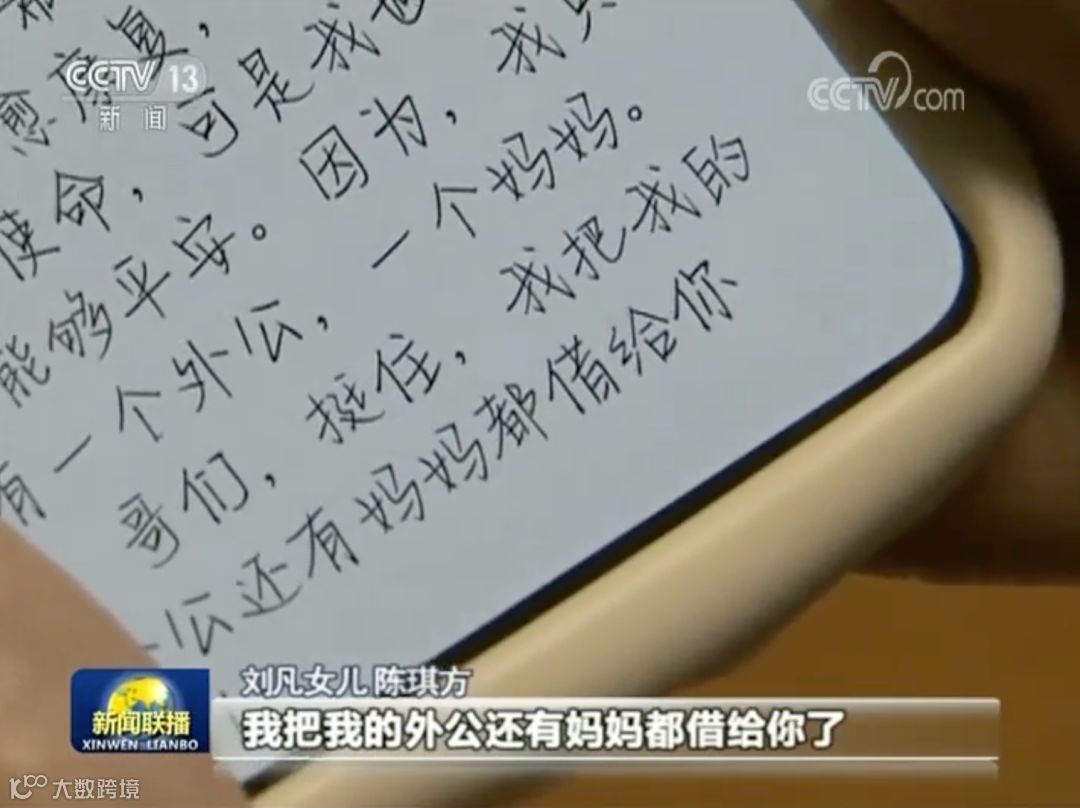 CCTV 13
新闻
CCTV.com
愈康复，
使命，可是我也
能够平安。因为，我只
有一个外公，一个妈妈。
哥们，挺住，我把我的
外公还有妈妈都借给你
刘凡女儿 陈琪方
新闻联播
XINWEN LIANBO
我把我的外公还有妈妈都借给你了
大数跨境